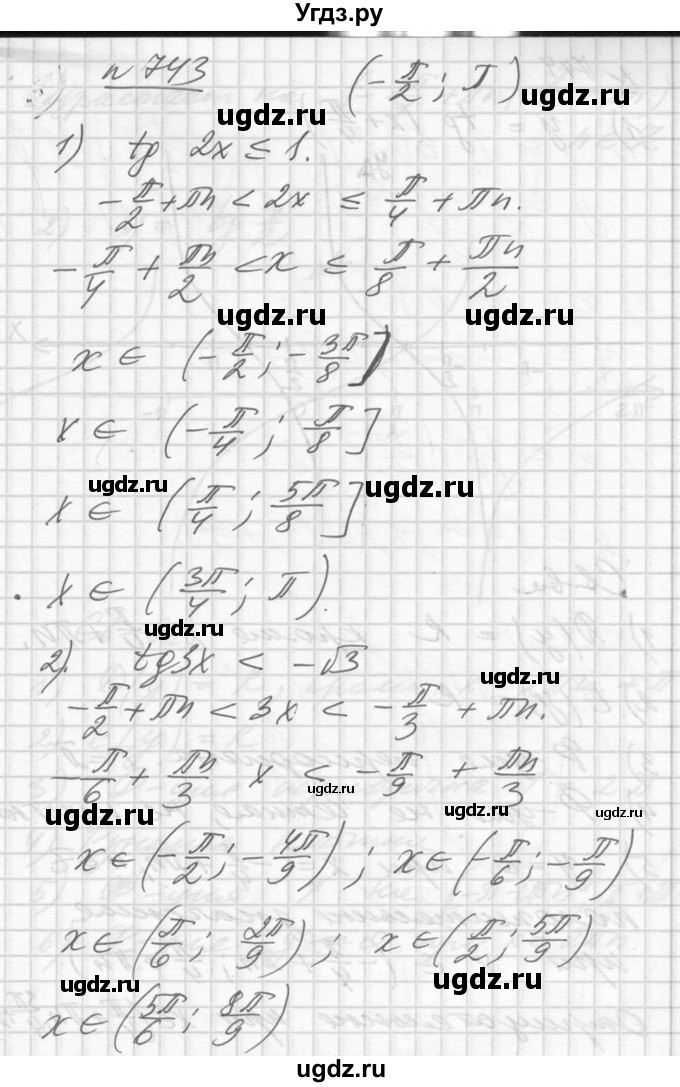 Угдз.ру
n 743 (-π/2; π)
ugdz.ru
1) tg 2x ≤ 1.
ugdz.ru
-π/2 + πn < 2x ≤ π/4 + πn.
-π/4 + πn/2 < x ≤ π/8 + πn/2
ugdz.ru ugdz.ru
x ∈ (-π/2; -3π/8]
x ∈ (-π/4; π/8]
ugdz.ru ugdz.ru
x ∈ (π/4; 5π/8]
x ∈ (3π/4; π).
ugdz.ru
2). tg3x < -√3
ugdz.ru
-π/2 + πn < 3x < -π/3 + πn.
-π/6 + πn/3 x < -π/9 + πn/3
ugdz.ru ugdz.ru ugdz.ru ugdz.ru
x ∈ (-π/2; -4π/9); x ∈ (-π/6; -π/9)
x ∈ (π/6; 2π/9); x ∈ (π/2; 5π/9)
ugdz.ru ugdz.ru
x ∈ (5π/6; 8π/9)
ugdz.ru